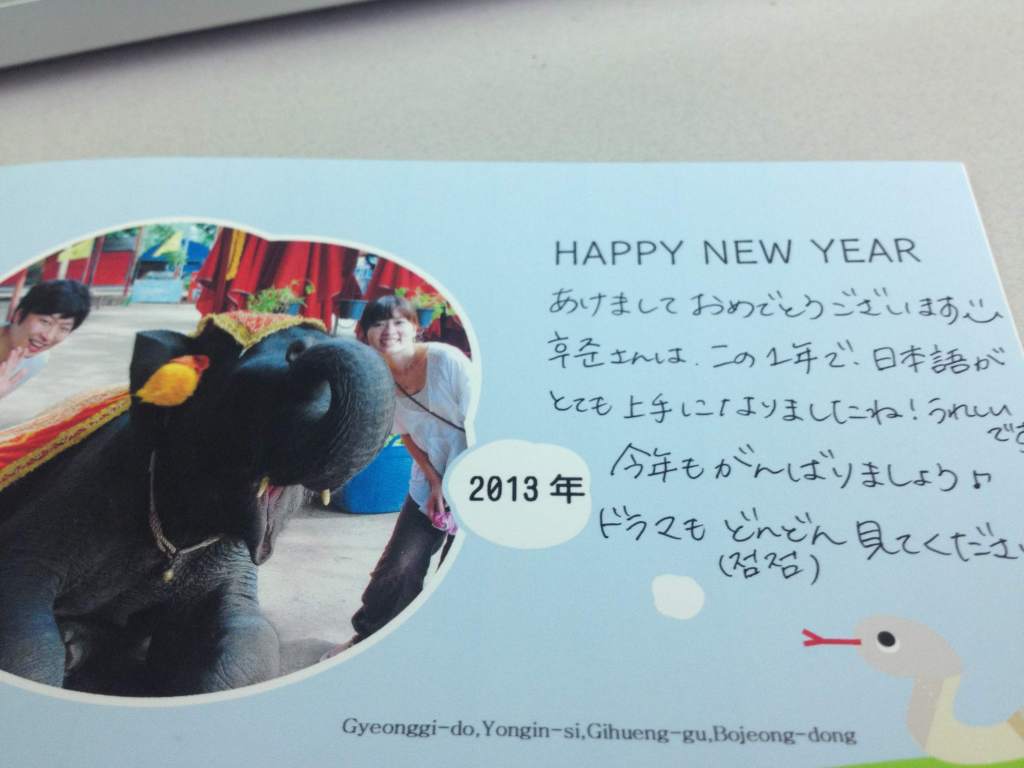 HAPPY NEW YEAR
あけまして おめでとうございます
후준さんは、この1年で、日本語が
とても 上手になりましたね！うれしい
です
今年もがんばりましょう♪
ドラマも どんどん 見てくださ
(점점)
2013年
Gyeonggi-do,Yongin-si,Gihueng-gu,Bojeong-dong